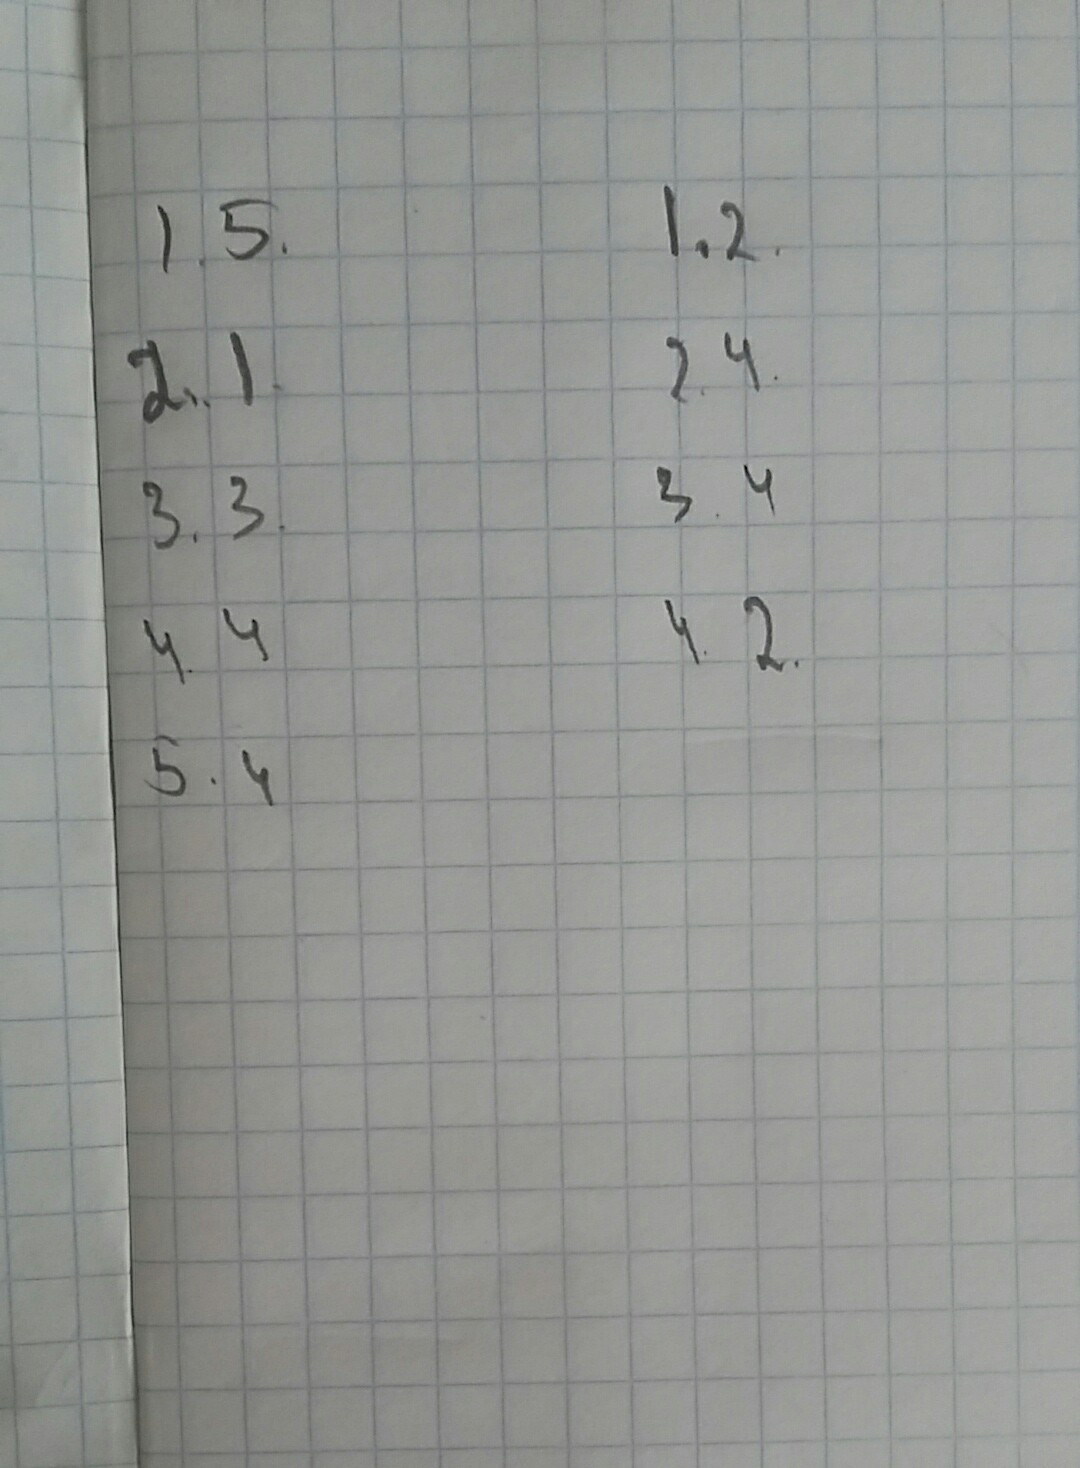 1. 5.
2. 1.
3. 3.
4. 4
5. 4
1. 2.
2. 4.
3. 4
4. 2.